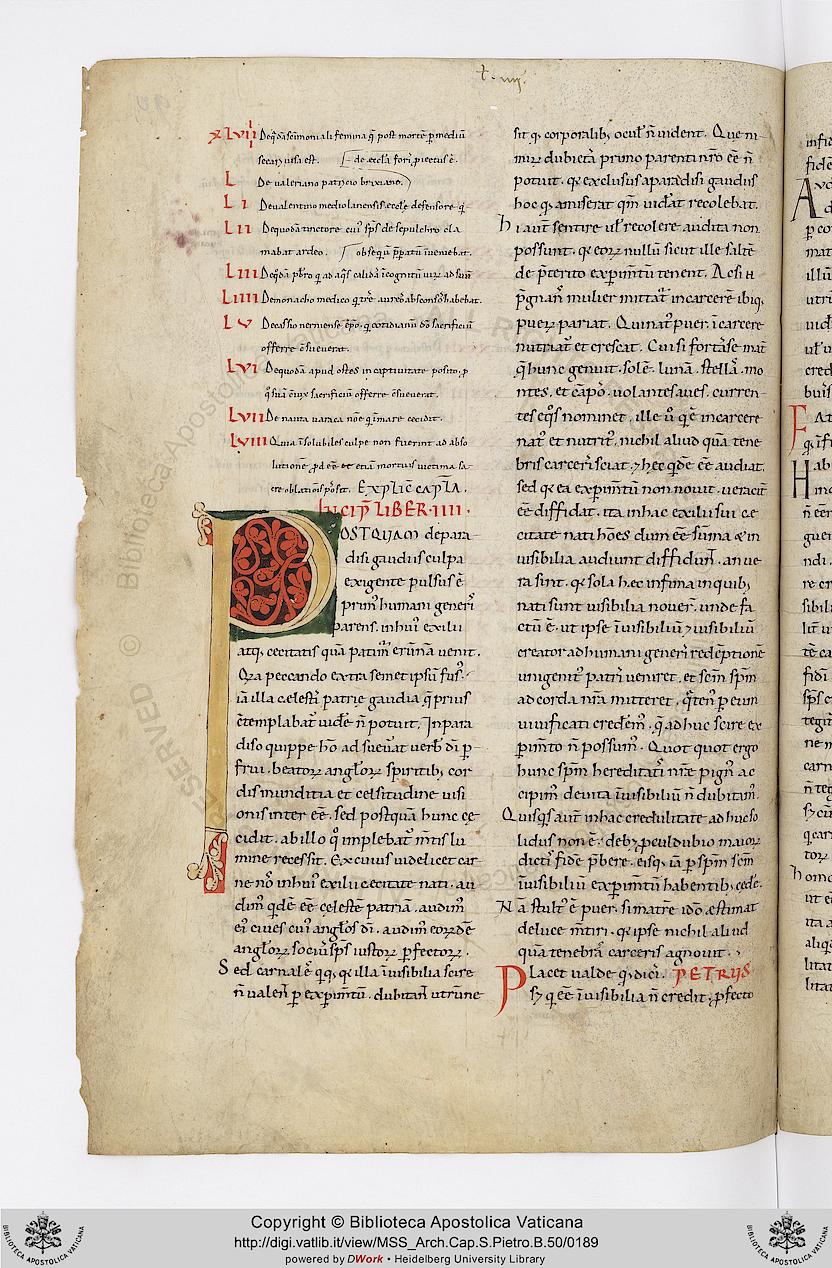 t. iiij.
xLviiij De q̄dā sc̄imoniali femina q̄ post mortē p mediū
secari uisa est.
L De ualeriano patricio brixiano.
L i De ualentino mediolanensis eccłe defensore
L ii De quodā tinctore cui᷒ sp̄s de sepulchro cla
mabat ardeo.
L iii
L iiii De monacho medico q̄ tres aureos absconsos habebat.
L v De cassio narniense ep̄o. q̄ cotidianū dō sacrificiū
offerre c̄sueuerat.
L vi De quodā apud ostes in captiuitate posito. p
q̄ sua c̄iux sacrificiū offerre c̄sueuerat.
L vii De nauta uaraca nōe q̄ in mare cecidit.
L viii Quia insolubiles culpe non fuerint ad abso
lutionē pdeē et etiā mortuis uictima sa
cre oblationis possit. EXPLIC̄ CAPLA.
INCIP̄ LIBER IIII.
POSTQUAM depara
disi gaudiis culpa
exigente pulsus ē
prim᷒ humani generis
parens. in hui᷒ exilii
atq; cecitatis quā patimur erūnā uenit.
Q̄a peccando extra semet ipsū fus᷒.
iā illa celestis patrie gaudia q̄ prius
c̄templabat᷒ uidere n̄ potuit. In para
diso quippe hō adsueuerat uerbis dī p
frui. beatoꝝ angłoꝝ spiritib; cor
dis munditia et celsitudine uisi
onis inter eē. sed postquā hunc ce
cidit. ab illo q̄ implebat᷒ mētis lu
mine recessit. Ex cuius uidelicet car
ne nos in hui᷒ exilii cecitate nati. au
dim᷒ q̄dē eē celestē patriā. audim᷒
ei᷒ ciues eē angłos dī. audim᷒ eorūdē
angłoꝝ sociū sp̄s iustoꝝ pfectoꝝ.
Sed carnales q̄q; q̄ illa inuisibilia scire
n̄ ualent p expimtū. dubitant utrūne
sit q; corporalib; oculis n̄ uident. Que ni
mirū dubietas primo parenti nr̄o eē n̄
potuit. q̄ exclusus a paradisi gaudiis
hoc q̄ amiserat qm̄ uiderat recolebat.
Hi aūt sentire uł recolere audita non
possunt. q̄ eoꝝ nullū sicut ille saltē
de p̄terito expimtū tenent. Ac si
p̄gnans mulier mittat᷒ in carcerē ibiq;
puerū pariat. Qui nat᷒ puer. in carcere
nutriat᷒ et crescat. Cui si fortasse mat᷒
q̄ hunc genuit. solē. lunā. stellas. mo
ntes. et cāpos. uolantes aues. curren
tes eq̄s nominet. ille ū q̄ ē in carcere
nat᷒ et nutrit᷒. nichil aliud quā tene
bras carceris sciat. ⁊ hec q̄dē eē audiat.
sed q̄ ea expimtū non nouit. ueraciter
eē diffidat. ita in hac exilii sui ce
citate nati hoēs dum eē sūma ⁊ in
uisibilia audiunt diffidunt. an ue
ra sint. q̄ sola hec infima in quib;
nati sunt uisibilia nouerunt. unde fa
ctū ē. ut ipse inuisibiliū ⁊ uisibiliū
creator ad humani generis redēptionē
unigenit᷒ patris ueniret. et sc̄m sp̄m
ad corda nr̄a mitteret. q̄ten᷒ p eum
uiuificati crederem᷒. q̄ adhuc scire ex
pimto n̄ possum᷒. Quot quot ergo
hunc sp̄m hereditatis nr̄e pign᷒ ac
cipim᷒. de uita inuisibiliū n̄ dubitam᷒.
Quisq̄s aūt in hac credulitate adhuc so
lidus non ē. debet p culdubio maioꝝ
dictis fidē p̄bere. eisq; iā p sp̄m sc̄m
inuisibiliū expimtū habentib; cede.
Nā stult᷒ ē puer. si matrē ido estimat
de luce mtiri. q̄ ipse nichil aliud
quā tenebras carceris agnouit.
Placet ualde q; dicis. PETRUS
Sȝ q eē inuisibilia n̄ credit. pfecto
Copyright © Biblioteca Apostolica Vaticana
http://digi.vatlib.it/view/MSS_Arch.Cap.S.Pietro.B.50/0189
powered by DWork • Heidelberg University Library